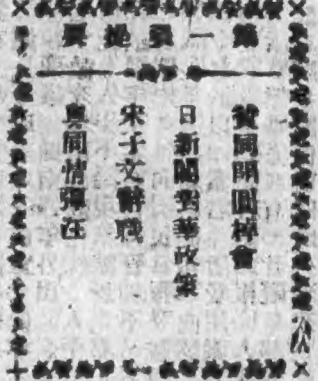 第一張提要
贊同開圓棹會
日新閣對華政策
宋子文辭職
粵同情彈汪